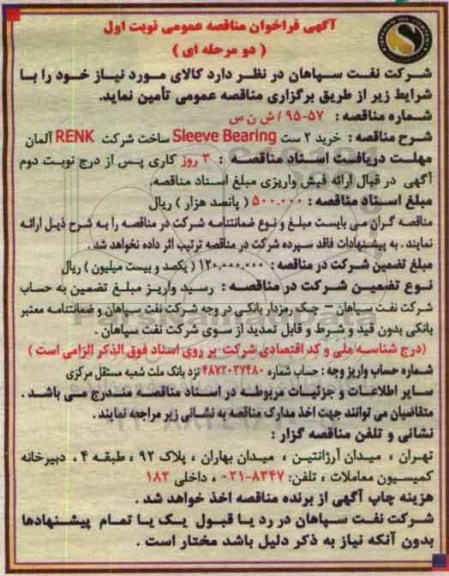 آگهی فراخوان مناقصه عمومی نوبت اول
( دو مرحله ای )
شرکت نفت سپاهان در نظر دارد کالای مورد نیاز خود را با
شرایط زیر از طریق برگزاری مناقصه عمومی تأمین نماید.
شماره مناقصه : ۹۵-۵۷ / ش ن س
شرح مناقصه : خرید ۲ ست Sleeve Bearing ساخت شرکت RENK آلمان
مهلت دریافت اسناد مناقصه : ۳ روز کاری پس از درج نوبت دوم
آگهی در قبال ارائه فیش واریزی مبلغ اسناد مناقصه.
مبلغ اسناد مناقصه : ۵۰۰.۰۰۰ ( پانصد هزار ) ریال
مناقصه گران می بایست مبلغ و نوع ضمانتنامه شرکت در مناقصه را به شرح ذیل ارائه
نمایند . به پیشنهادات فاقد سپرده شرکت در مناقصه ترتیب اثر داده نخواهد شد .
مبلغ تضمین شرکت در مناقصه : ۱۲۰.۰۰۰.۰۰۰ ( یکصد و بیست میلیون ) ریال
نوع تضمین شرکت در مناقصه : رسید واریز مبلغ تضمین به حساب
شرکت نفت سپاهان – چک رمزدار بانکی در وجه شرکت نفت سپاهان و ضمانتنامه معتبر
بانکی بدون قید و شرط و قابل تمدید از سوی شرکت نفت سپاهان .
(درج شناسه ملی و کد اقتصادی شرکت بر روی اسناد فوق الذکر الزامی است )
شماره حساب واریز وجه : حساب شماره ۴۸۷۲۰۳۷۴۸۰ نزد بانک ملت شعبه مستقل مرکزی
سایر اطلاعات و جزئیات مربوطه در اسناد مناقصه مندرج می باشد .
متقاضیان می توانند جهت اخذ مدارک مناقصه به نشانی زیر مراجعه نمایند .
نشانی و تلفن مناقصه گزار :
تهران ، میدان آرژانتین ، میدان بهاران ، پلاک ۹۲ ، طبقه ۴ ، دبیرخانه
کمیسیون معاملات ، تلفن: ۸۳۴۷-۰۲۱ ، داخلی ۱۸۲
هزینه چاپ آگهی از برنده مناقصه اخذ خواهد شد .
شرکت نفت سپاهان در رد یا قبول یک یا تمام پیشنهادها
بدون آنکه نیاز به ذکر دلیل باشد مختار است .